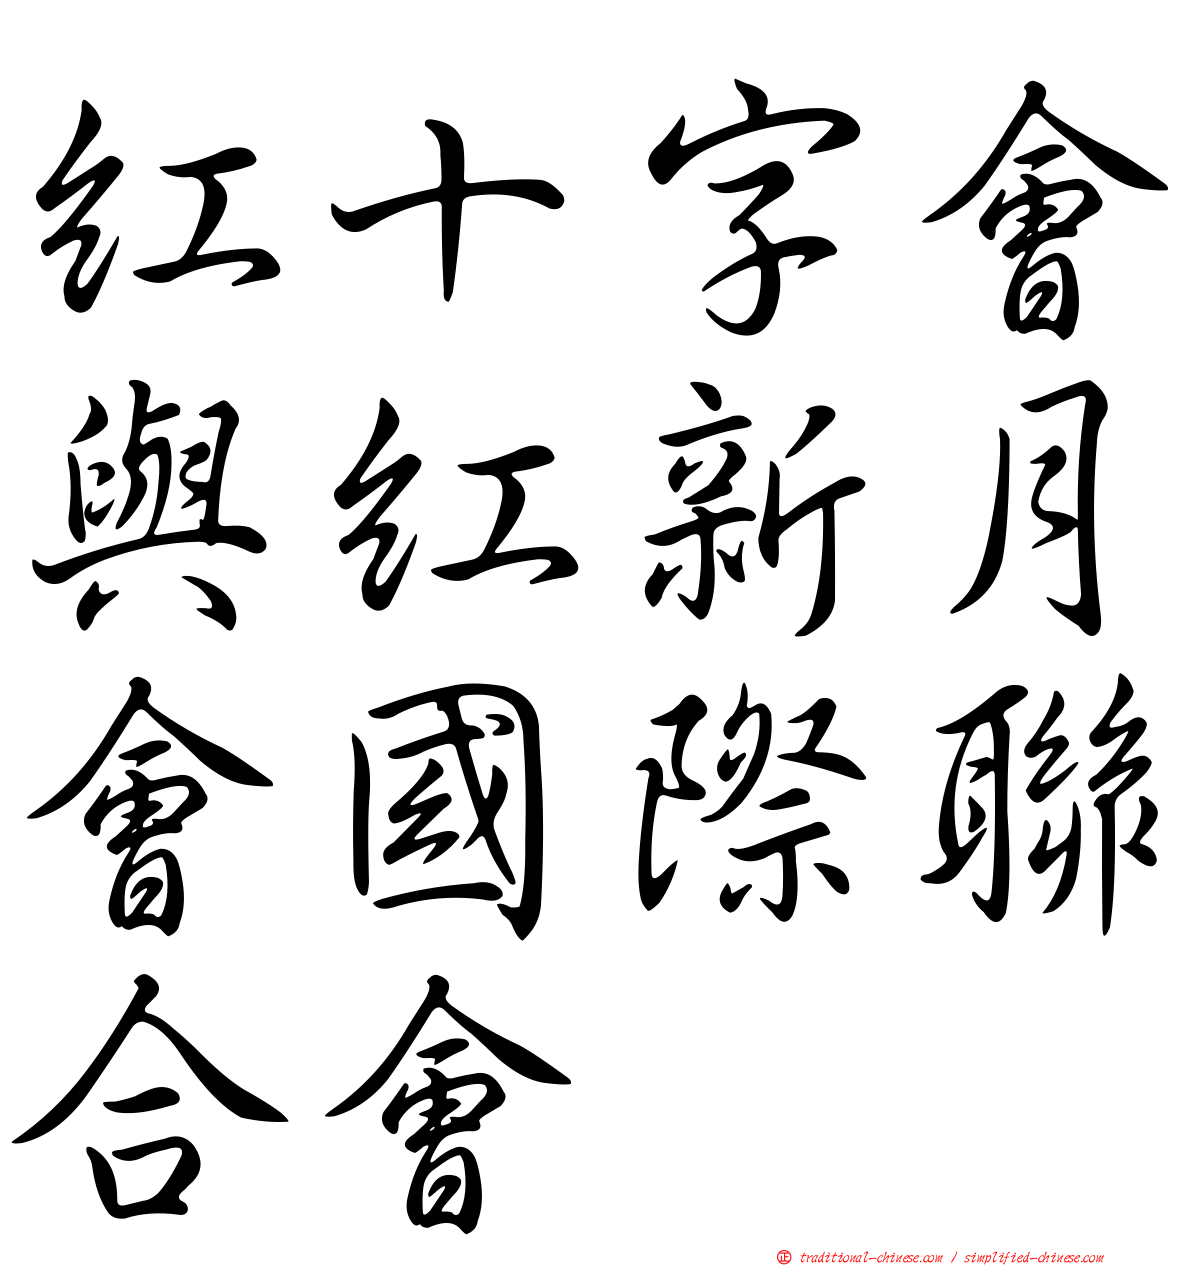 紅十字會
與紅新月
會國際聯
合會
正 traditional-chinese.com / simplified-chinese.com